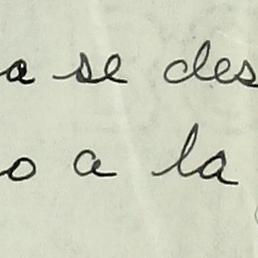 a se des
o a la